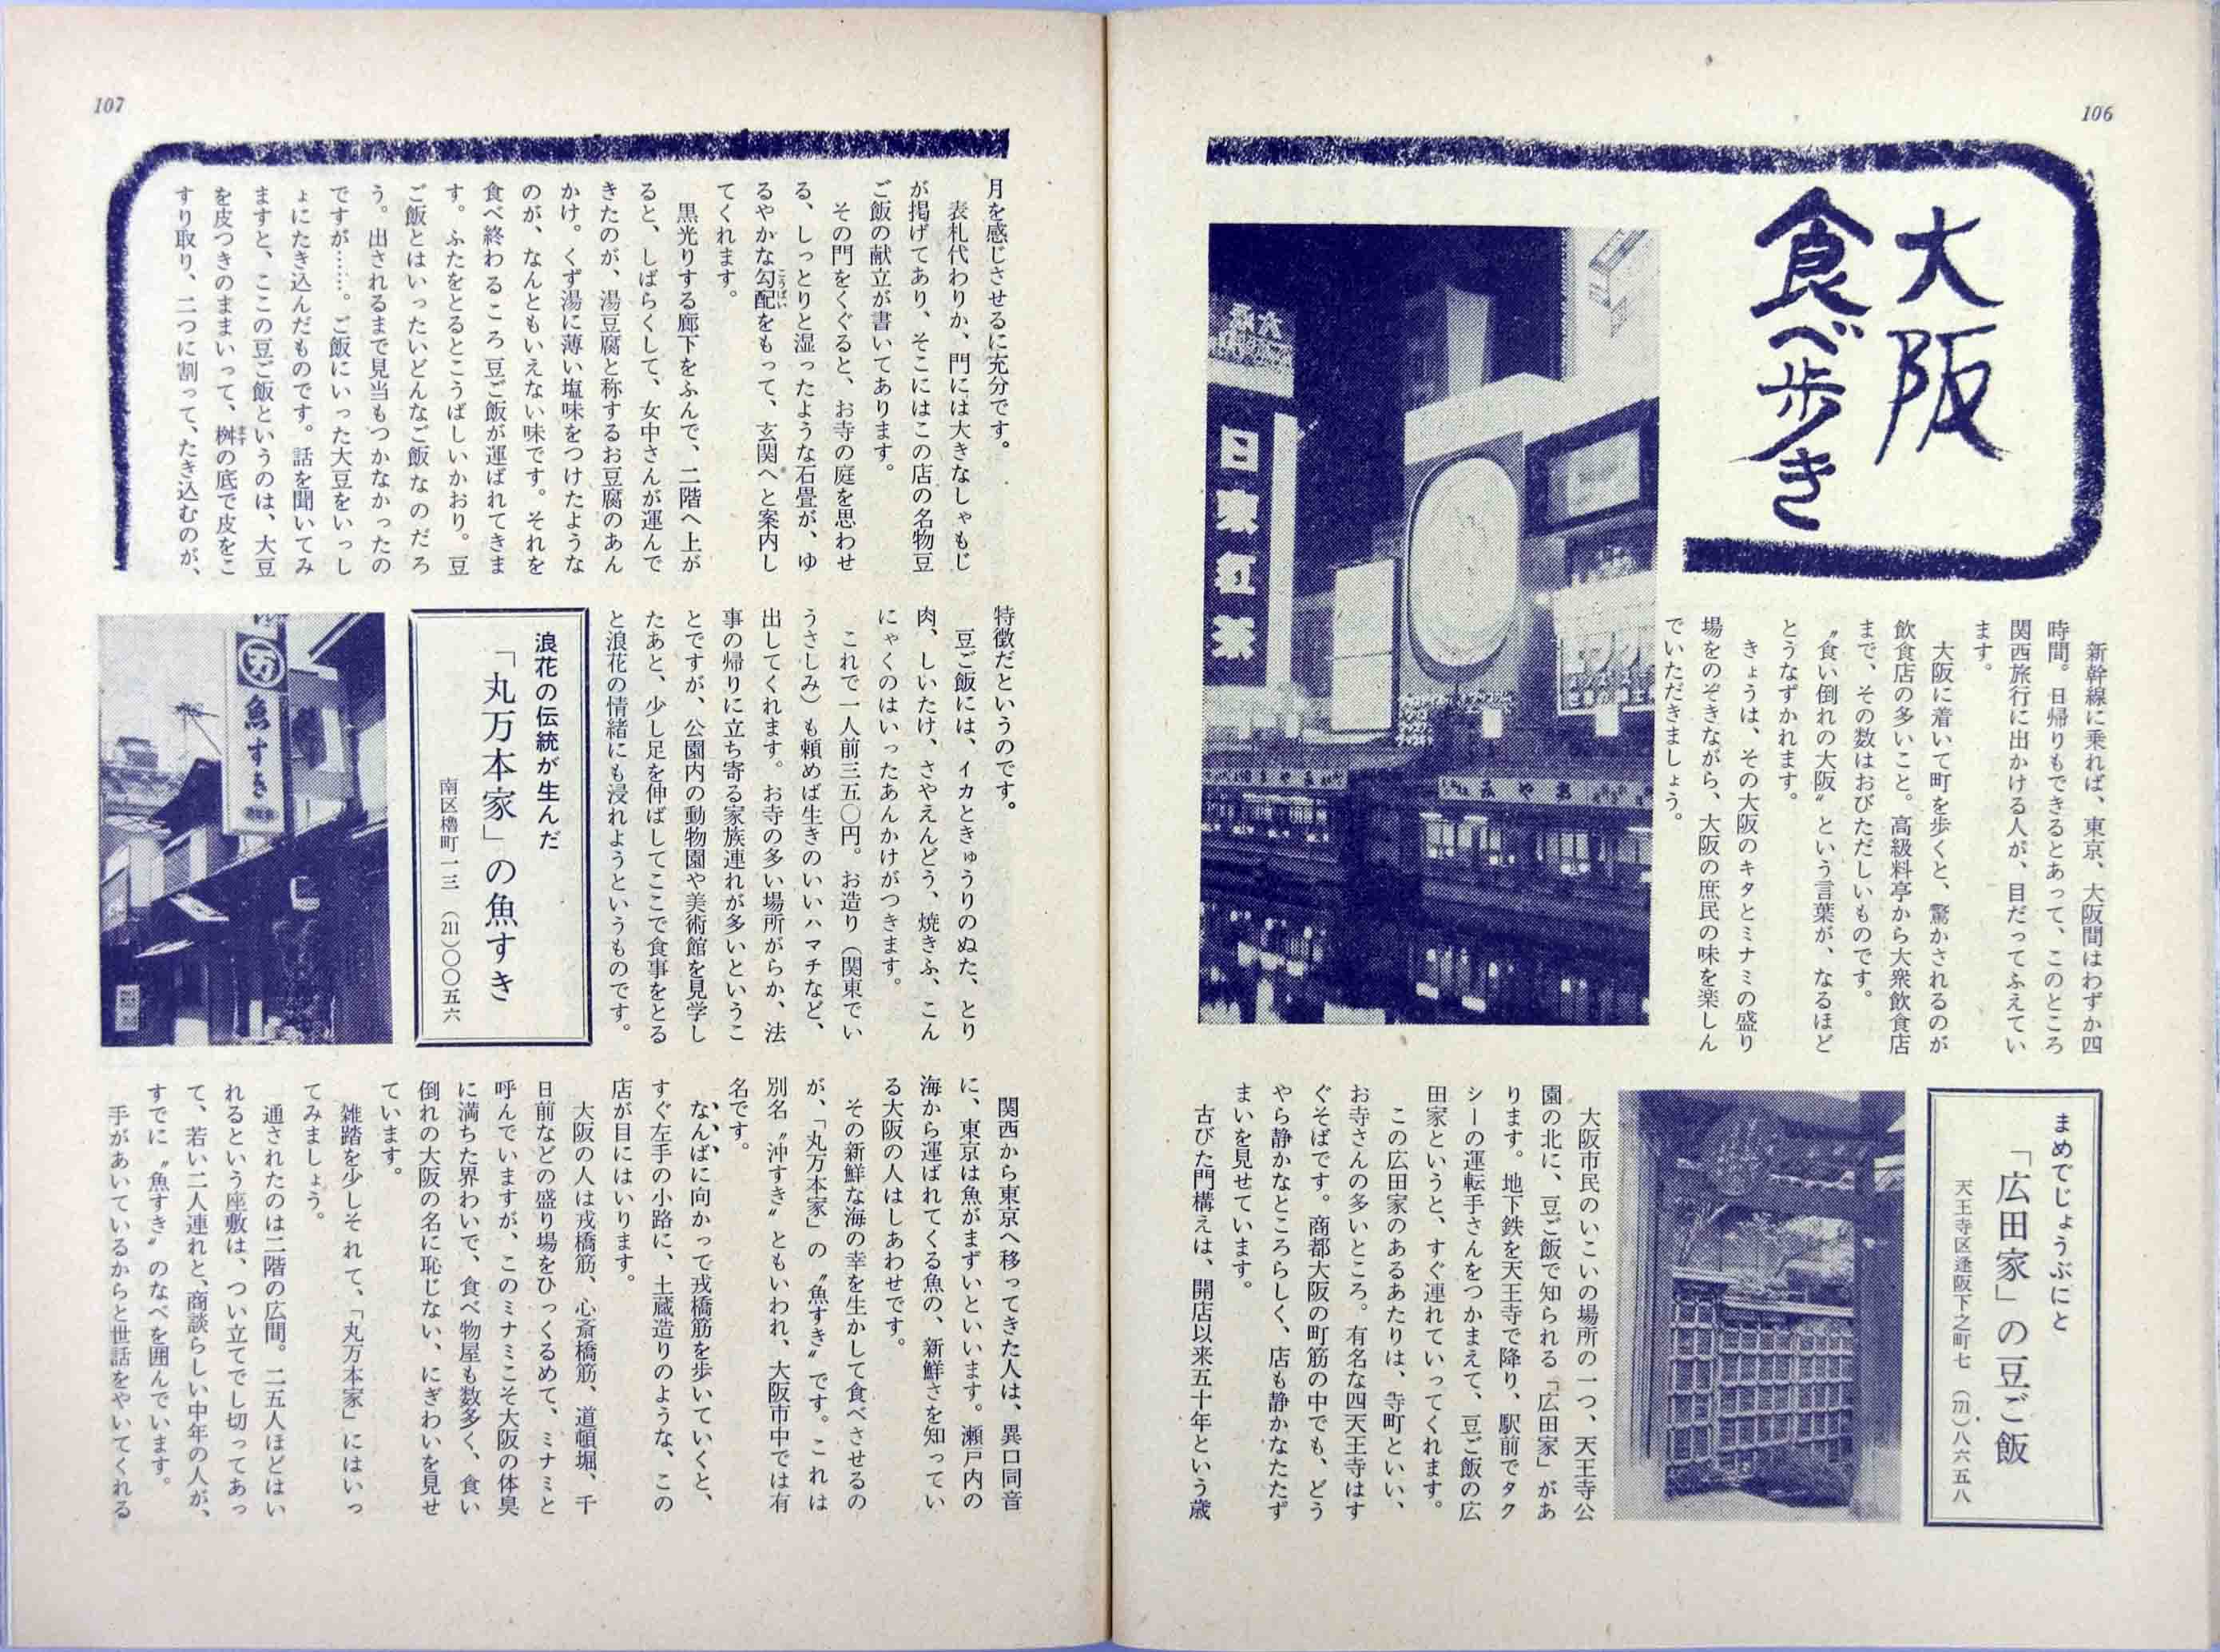 106
大阪
食べ歩き
日東紅茶
新幹線に乗れば、東京、大阪間はわずか四
時間。日帰りもできるとあって、このところ
関西旅行に出かける人が、目だってふえてい
ます。
大阪に着いて町を歩くと、驚かされるのが
飲食店の多いこと。高級料亭から大衆飲食店
まで、その数はおびただしいものです。
〝食い倒れの大阪〟という言葉が、なるほど
とうなずかれます。
きょうは、その大阪のキタとミナミの盛り
場をのぞきながら、大阪の庶民の味を楽しん
でいただきましょう。
まめでじょうぶにと
「広田家」の豆ご飯
天王寺区逢阪下之町七 (771)八六五八
大阪市民のいこいの場所の一つ、天王寺公
園の北に、豆ご飯で知られる「広田家」があ
ります。地下鉄を天王寺で降り、駅前でタク
シーの運転手さんをつかまえて、豆ご飯の広
田家というと、すぐ連れていってくれます。
この広田家のあるあたりは、寺町といい、
お寺さんの多いところ。有名な四天王寺はす
ぐそばです。商都大阪の町筋の中でも、どう
やら静かなところらしく、店も静かなたたず
まいを見せています。
古びた門構えは、開店以来五十年という歳
107
月を感じさせるに充分です。
表札代わりか、門には大きなしゃもじ
が掲げてあり、そこにはこの店の名物豆
ご飯の献立が書いてあります。
その門をくぐると、お寺の庭を思わせ
る、しっとりと湿ったような石畳が、ゆ
るやかな勾配をもって、玄関へと案内し
てくれます。
黒光りする廊下をふんで、二階へ上が
ると、しばらくして、女中さんが運んで
きたのが、湯豆腐と称するお豆腐のあん
かけ。くず湯に薄い塩味をつけたような
のが、なんともいえない味です。それを
食べ終わるころ豆ご飯が運ばれてきま
す。ふたをとるとこうばしいかおり。豆
ご飯とはいったいどんなご飯なのだろ
う。出されるまで見当もつかなかったの
ですが……。ご飯にいった大豆をいっし
ょにたき込んだものです。話を聞いてみ
ますと、ここの豆ご飯というのは、大豆
を皮つきのままいって、桝の底で皮をこ
すり取り、二つに割って、たき込むのが、
特徴だというのです。
豆ご飯には、イカときゅうりのぬた、とり
肉、しいたけ、さやえんどう、焼きふ、こん
にゃくのはいったあんかけがつきます。
これで一人前三五〇円。お造り（関東でい
うさしみ）も頼めば生きのいいハマチなど、
出してくれます。お寺の多い場所がらか、法
事の帰りに立ち寄る家族連れが多いというこ
とですが、公園内の動物園や美術館を見学し
たあと、少し足を伸ばしてここで食事をとる
と浪花の情緒にも浸れようというものです。
浪花の伝統が生んだ
「丸万本家」の魚すき
南区櫓町一三 (211)〇〇五六
万 魚すき
関西から東京へ移ってきた人は、異口同音
に、東京は魚がまずいといいます。瀬戸内の
海から運ばれてくる魚の、新鮮さを知ってい
る大阪の人はしあわせです。
その新鮮な海の幸を生かして食べさせるの
が、「丸万本家」の〝魚すき〟です。これは
別名〝沖すき〟ともいわれ、大阪市中では有
名です。
なんばに向かって戎橋筋を歩いていくと、
すぐ左手の小路に、土蔵造りのような、この
店が目にはいります。
大阪の人は戎橋筋、心斎橋筋、道頓堀、千
日前などの盛り場をひっくるめて、ミナミと
呼んでいますが、このミナミこそ大阪の体臭
に満ちた界わいで、食べ物屋も数多く、食い
倒れの大阪の名に恥じない、にぎわいを見せ
ています。
雑踏を少しそれて、「丸万本家」にはいっ
てみましょう。
通されたのは二階の広間。二五人ほどはい
れるという座敷は、つい立てでし切ってあっ
て、若い二人連れと、商談らしい中年の人が、
すでに〝魚すき〟のなべを囲んでいます。
手があいているからと世話をやいてくれる